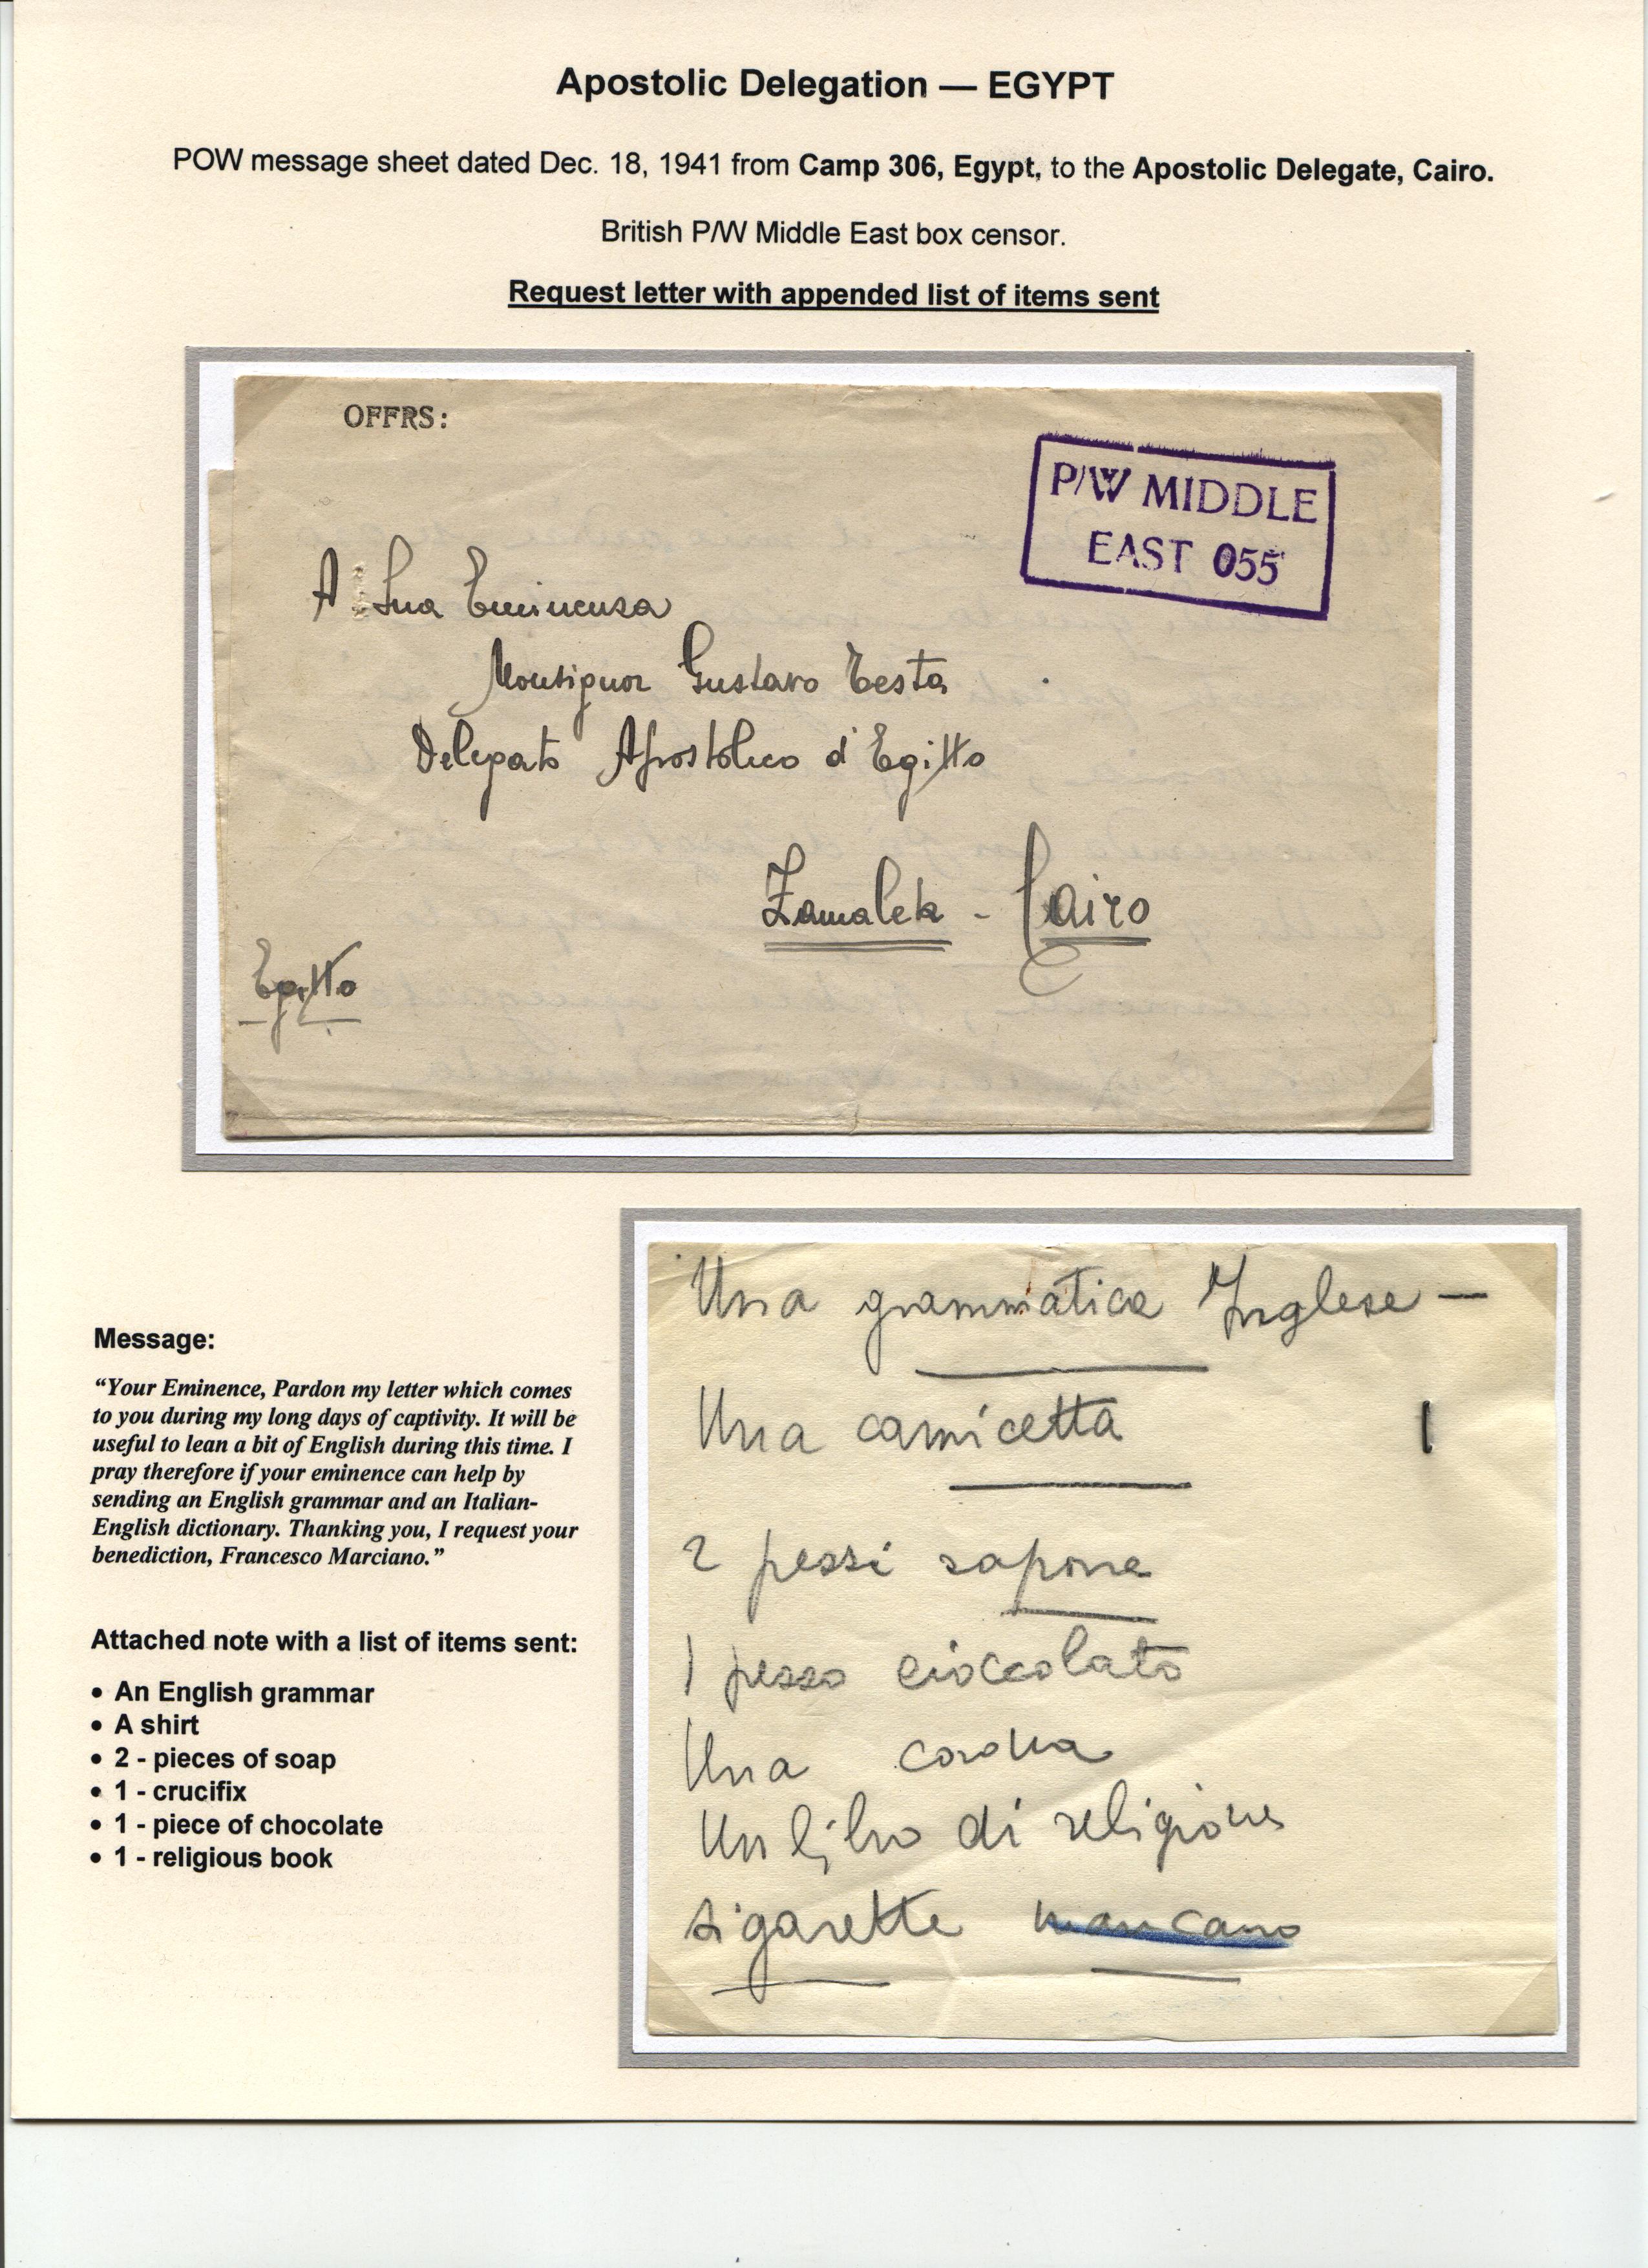 Apostolic Delegation — EGYPT
POW message sheet dated Dec. 18, 1941 from Camp 306, Egypt, to the Apostolic Delegate, Cairo.
British P/W Middle East box censor.
Request letter with appended list of items sent
OFFRS:
P/W MIDDLE
EAST 055
A Sua Eminenza
Monsignor Gustavo Testa
Delegato Apostolico d'Egitto
Zamalek - Cairo
Egitto
Una grammatica Inglese —
Una camicetta 1
2 pezzi sapone
1 pezzo cioccolato
Una corona
Un libro di religione
sigarette mancano
Message:
“Your Eminence, Pardon my letter which comes
to you during my long days of captivity. It will be
useful to lean a bit of English during this time. I
pray therefore if your eminence can help by
sending an English grammar and an Italian-
English dictionary. Thanking you, I request your
benediction, Francesco Marciano.”
Attached note with a list of items sent:
• An English grammar
• A shirt
• 2 - pieces of soap
• 1 - crucifix
• 1 - piece of chocolate
• 1 - religious book